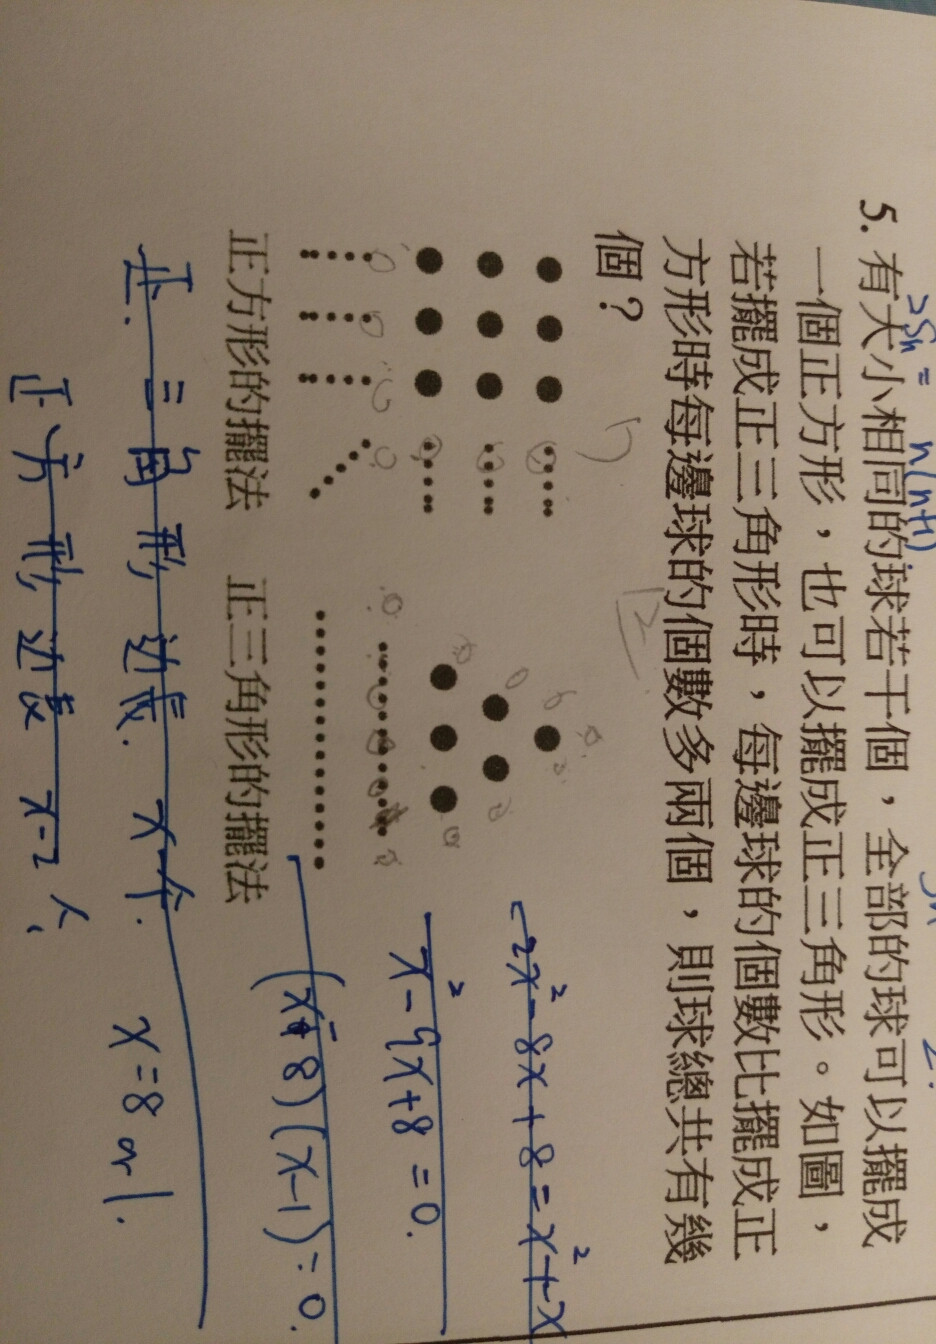 2Sn = n(n+1)
5. 有大小相同的球若干個，全部的球可以擺成
一個正方形，也可以擺成正三角形。如圖，
若擺成正三角形時，每邊球的個數比擺成正
方形時每邊球的個數多兩個，則球總共有幾
個？
正方形的擺法
正三角形的擺法
2x²-8x+8=x²+x
x²-9x+8=0.
(x-8)(x-1)=0.
正三角形边長. x个.
x=8 or 1.
正方形边長 x-2个